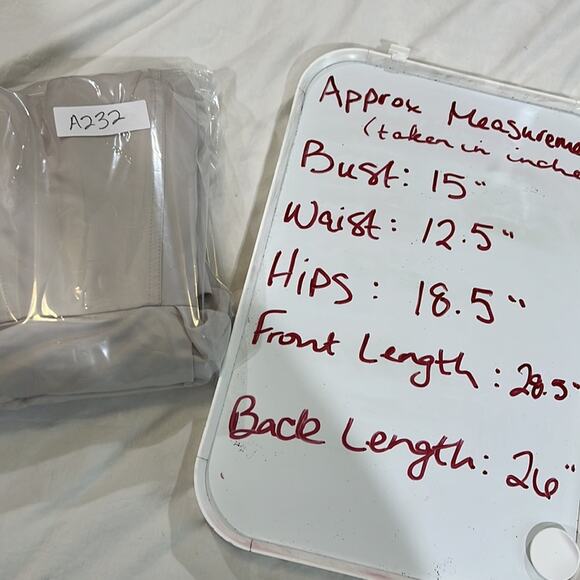 A232
Approx Measureme
(taken in inche
Bust: 15"
Waist: 12.5"
Hips: 18.5"
Front Length: 28.5"
Back Length: 26"